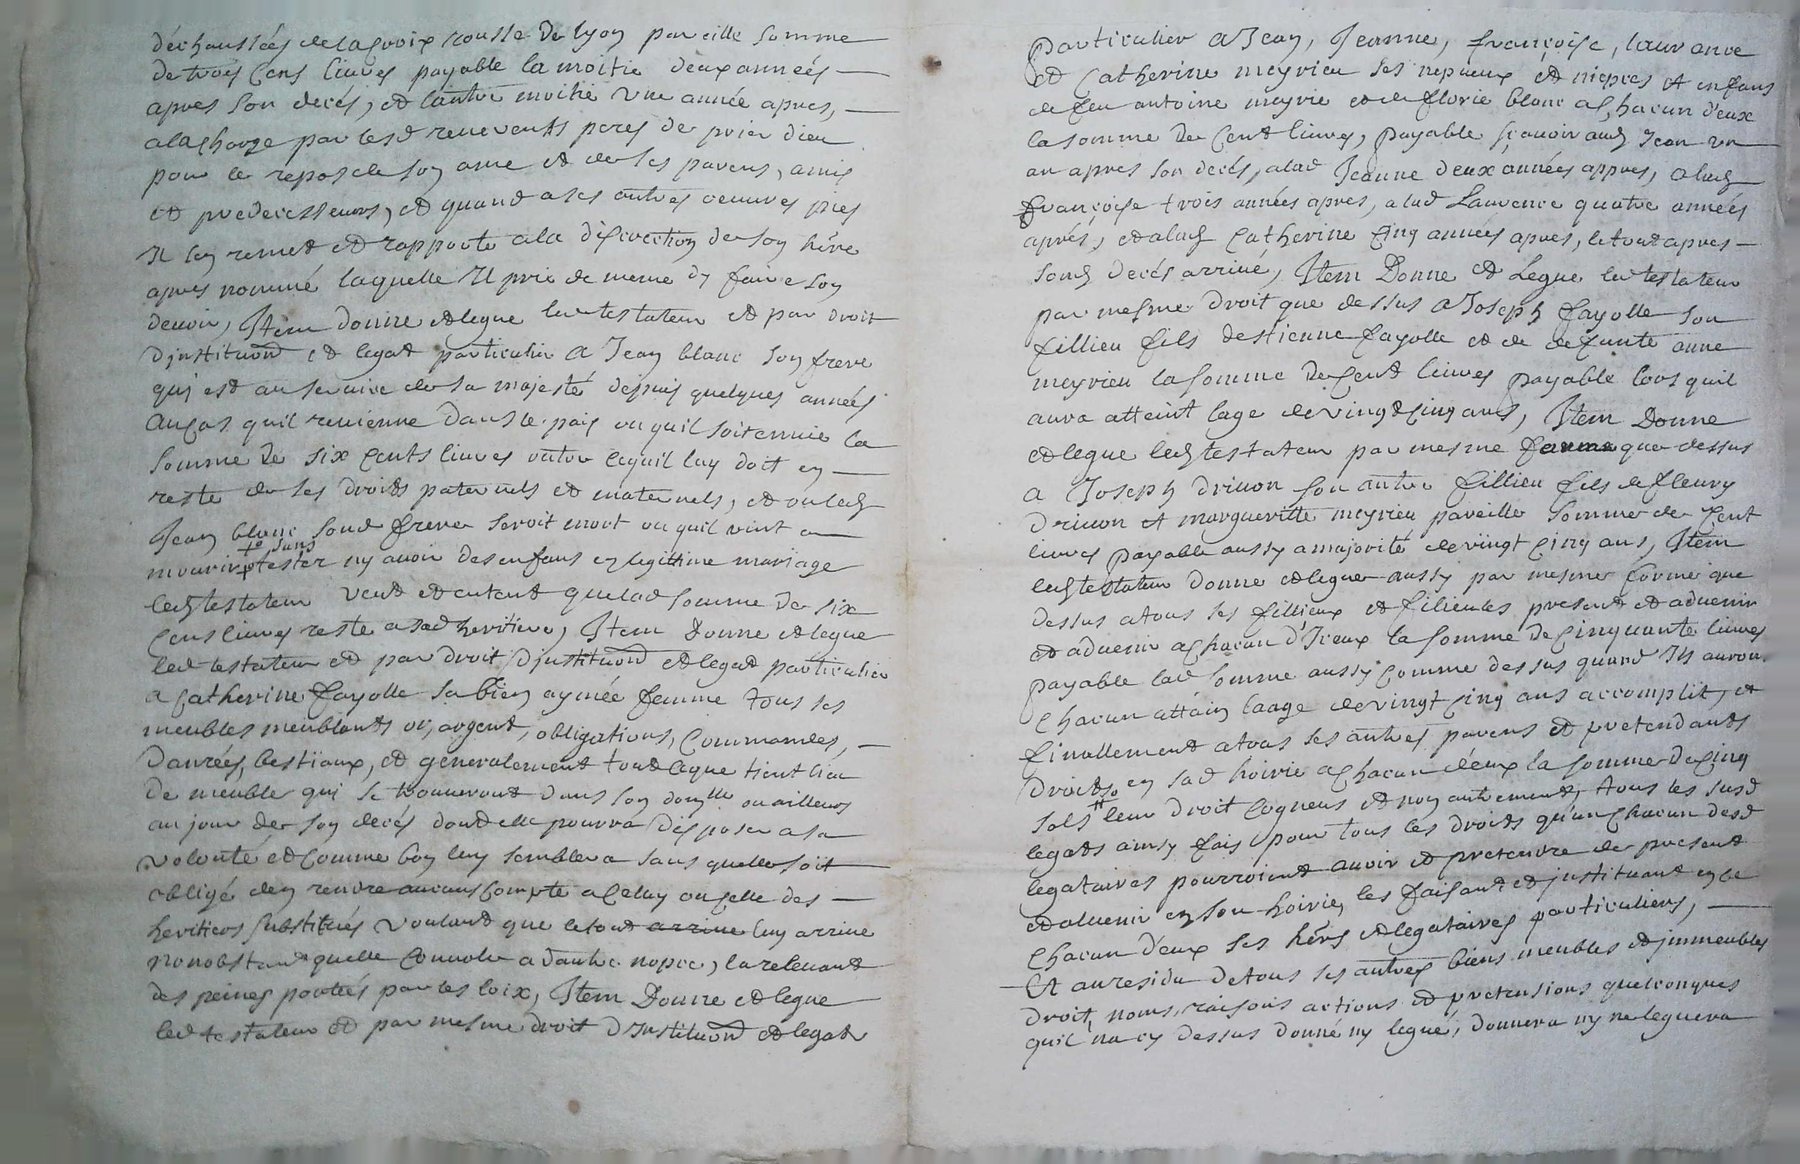 déchaussées de la Croix rousse de lyon pareille somme
de trois Cens livres payable la moitie deux années
apres son decés, et lautre moitié une année apres,
a la Charge par lesd reverents peres de prier dieu
pour le repos de son ame et de ses parens, amis
et predecesseurs, et quand a ses autres oeuvres pies
Il sen remet et rapporte a la discrection de son hére
apres nommé laquelle Il prie de meme dy faire son
devoir, Item donne et legue led testateur et par droit
dinstituon et legat particulier a Jean blanc son frere
qui est au service de sa majesté depuis quelques années
au Cas quil revienne dans le pais ou quil soit envie la
somme de six Cents livres outre Ce quil luy doit en
reste de ses droits paternels et maternels, et ou led
Jean blanc soud frere seroit mort ou quil vint a
mourir + sans tester ny avoir des enfans en legitime mariage
led testateur veut et entent que lad somme de six
Cens livres reste a sad heritiere, Item Donne et legue
led testateur et par droit dinstituon et legat particulier
a Catherine fayolle sa bien aymée femme tous ses
meubles meublants or, argent, obligations, Commandes,
Danrées, bestiaux, et generalement tout Ce que tient lieu
de meuble qui se trouveront dans son domlle ou ailleurs
au jour de son decés dont elle pourra disposer a sa
volonté et Comme bon luy semblera sans quelle soit
obligé den rendre aucuns Compte a Celuy ou Celle des
heritiers substitués voulant que le tout arrive luy arrive
nonobstant quelle Convole a dautre nopce, la relevant
des peines portées par les loix, Item Donne et legue
led testateur et par mesme droit dInstituon et legat
particulier a Jean, Jeanne, françoise, laurance
et Catherine meyrieu ses nepveux et niepces et enfans
de feu antoine meyrie et de florie blanc a Chacun d'eux
la somme de Cent livres, payable sçavoir aud Jean un
an apres son decés, a lad Jeanne deux années appres, a lad
françoise trois années apres, a lad Laurence quatre années
aprés, et a lad Catherine Cinq années apres, le tout apres
soud decés arrivé, Item Donne et Legue led testateur
par mesme droit que dessus a Joseph fayolle son
fillieu fils destienne fayolle et de defunte anne
meyrieu la somme de Cent livres payable lors quil
aura atteint lage de vingt Cinq ans, Item Donne
et legue led testateur par mesme forme que dessus
a Joseph drivon son autre fillieu fils de fleury
drivon et margueritte meyrieu pareille somme de Cent
livres payable aussy a majorité de vingt Cinq ans, Item
led testateur donne et legue aussy par mesme forme que
dessus a tous ses fillieux et filieules present et advenir
et advenir a Chacun d'Iceux la somme de Cinquante livres
payable lad somme aussy Comme dessus quand Ils auron
Chacun attain laage de vingt Cinq ans accomplit, et
finallement a tous ses autres parens et pretendants
droits en sad hoirie a Chacun deux la somme de Cinq
sols leur droit Cogneus et non autrement, tous les susd
legats ainsy fais pour tous les droits qu'un Chacun desd
legataires pourroient avoir et pretendre de present
et advenir en son hoirie, les faisant et jnstituant en Ce
Chacun d'eux ses hérs et legataires particuliers,
Et au residu de tous ses autres biens meubles et jmmeubles
droit, noms, raisons actions et pretensions quelconques
quil na cy dessus donné ny legué, donnera ny ne leguera